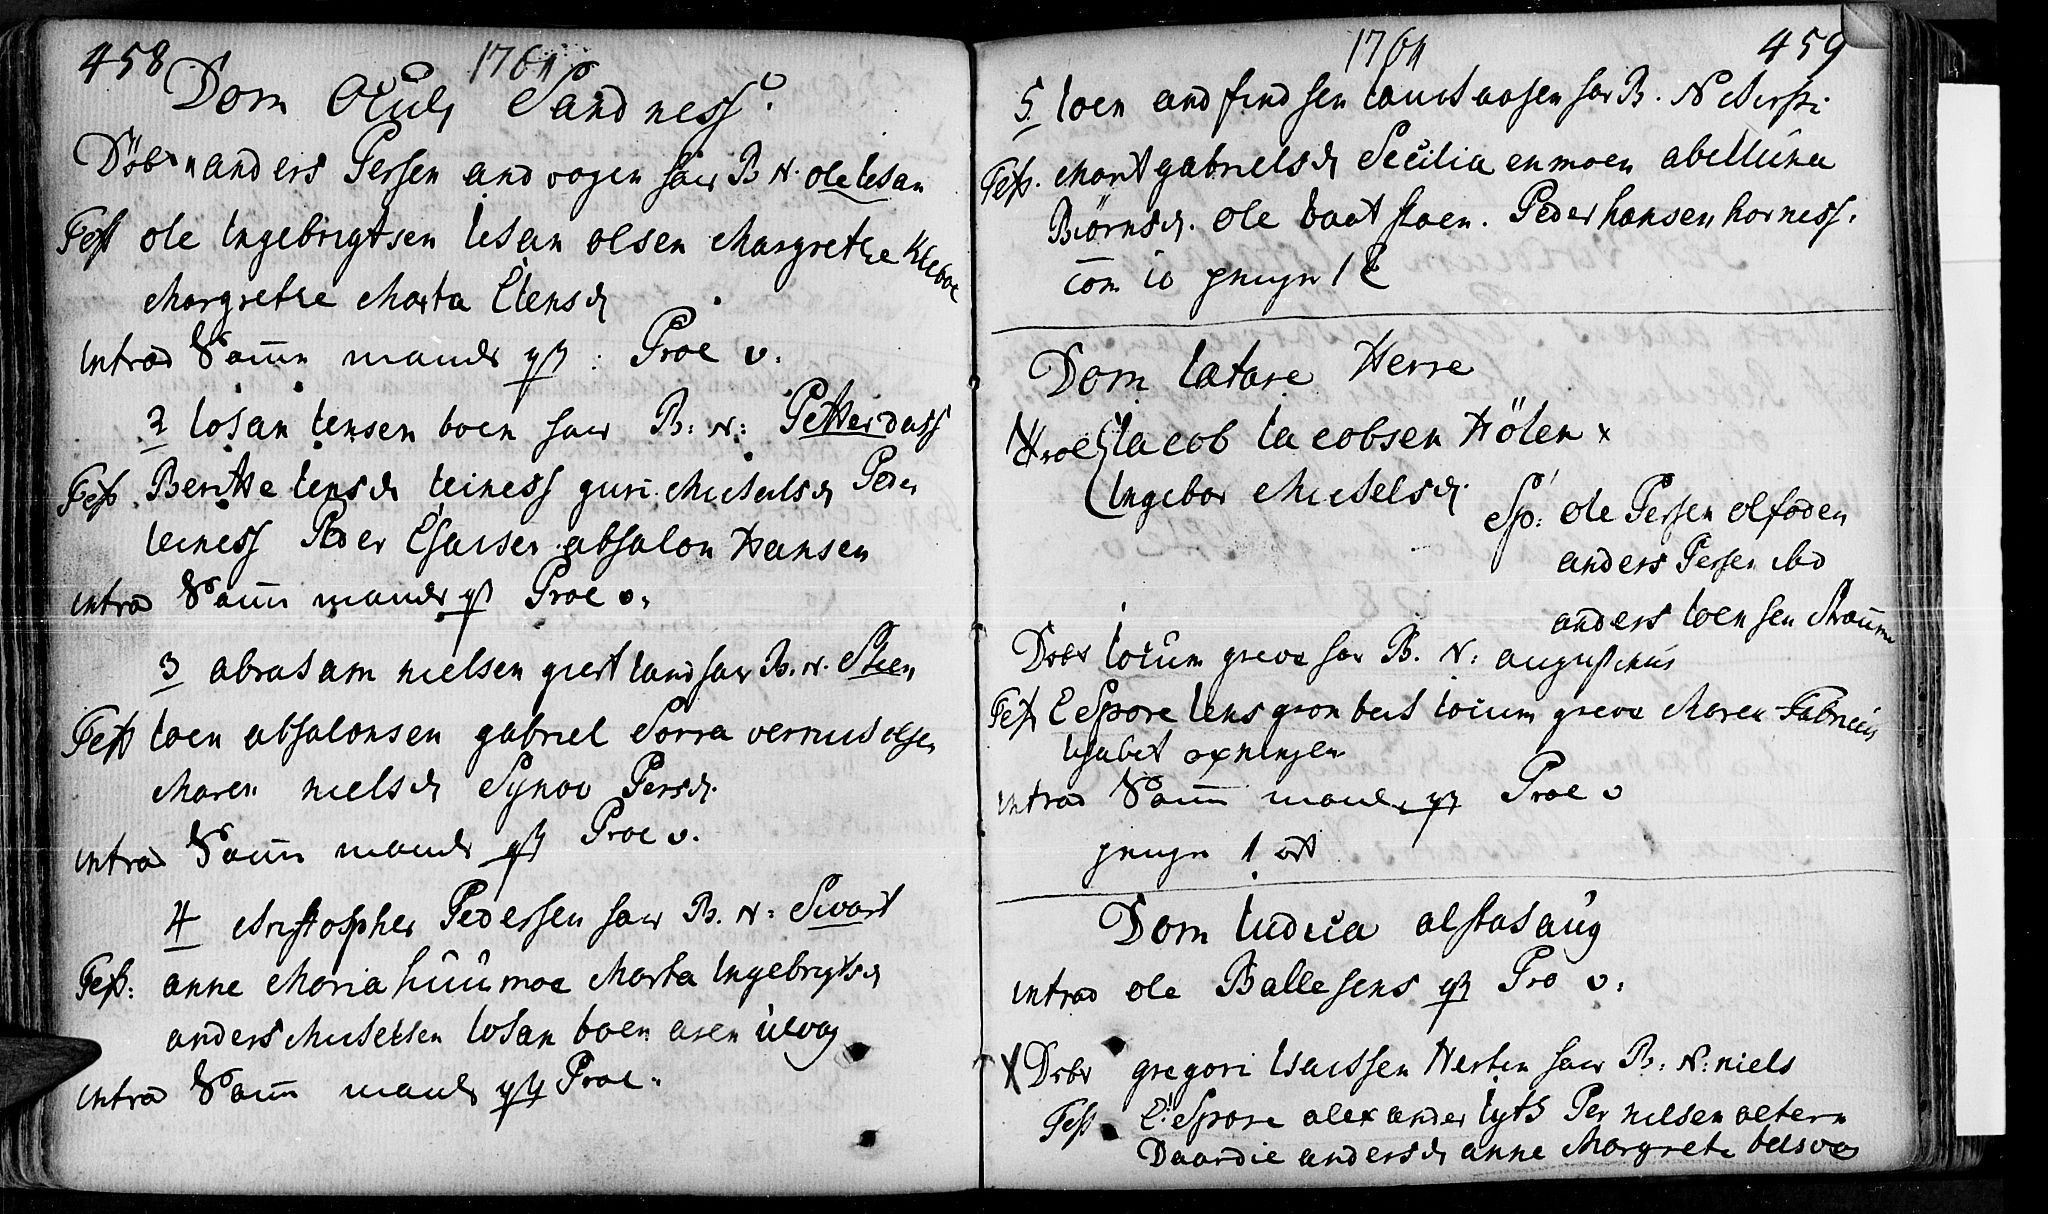 458 1764
Dom Oculi Sandness.
Döbt anders Persen andvogen har B N. ole Johan
Test ole Ingebrigtsen Johan olsen Margrethe Kleboe
Margrethe Marta Elensd
introd Samm mands qv: Proe v.
2 Johan Jensen boen har B: N: Petter dass
Test Berithe Jensd teiness guri Michelsd Peder
teiness Peder Esaisen absalon Hansen
introd Samm mands qv Proe v.
3 abraham nielsen giert land har B. N. Steen
Test Joen absalonsen gabriel Sorra olsen
Maren nielsd Synov Persd.
introd Samm mands qv Proe v.
4 Christopher Pedersen har B. N: Swart
Test: anne Maria huusmoe Marta Ingebrigtsd
anders Michelsen Johan boen aren ulvog
introd Samm mands qv Proe.
1764 459
5. Joen andfindsen har B. N
Test. Marit gabrielsd Secilia enmoen abellüna
Biörnsd. ole baatstoen. Peder hansen horness.
com 10 1
Dom lætare Herre
Troel Jacob Jacobsen Hölen x
Ingebor Michelsd.
Sp: ole Persen olfoden
anders Persen ibd
anders Joensen Straum
Döbt Jocum greve har B. N: augustinus
Test E Spore Jens gronbech Jocum greve Maren Fabricius
Isabet oxningen
introd Samm mands qv Proe v
1 ort
Dom Judica alstahaug
introd ole Ballesens qv Pro v.
X Döbt gregori Isacssen Hesten har B: N: niels
Test E: Spore alexander lyts Per nielsen altern
Daardie andersd anne Margrete belsvog